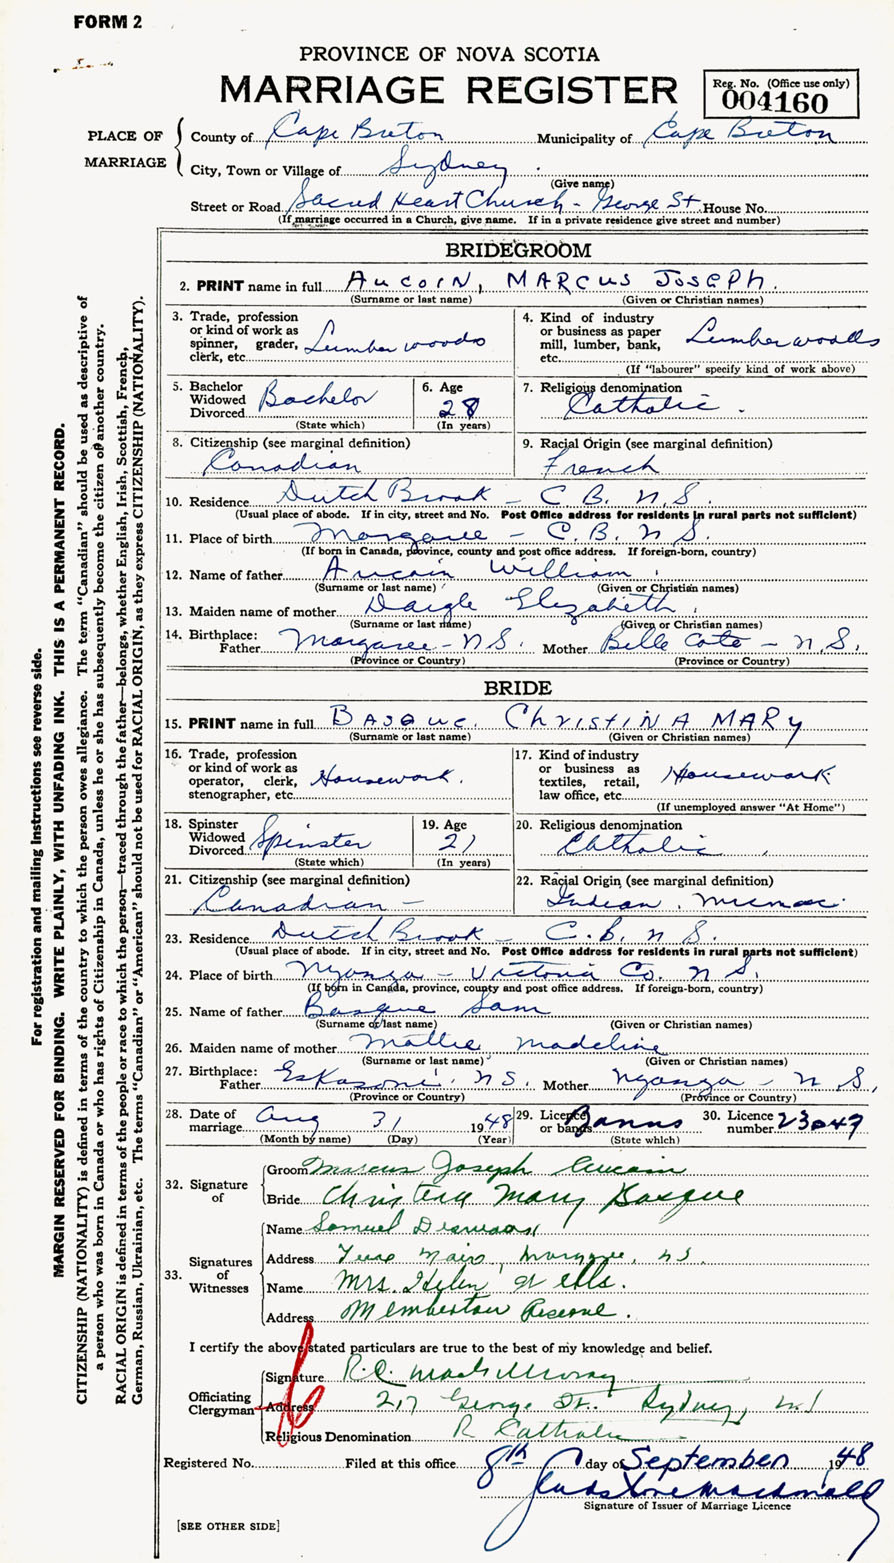 FORM 2
PROVINCE OF NOVA SCOTIA
MARRIAGE REGISTER
Reg. No. (Office use only)
004160
PLACE OF MARRIAGE
County of Cape Breton Municipality of Cape Breton
City, Town or Village of Sydney
(Give name)
Street or Road Sacred Heart Church - George St. House No.
(If marriage occurred in a Church, give name. If in a private residence give street and number)
BRIDEGROOM
2. PRINT name in full AUCOIN, MARCUS JOSEPH.
(Surname or last name) (Given or Christian names)
3. Trade, profession or kind of work as spinner, grader, clerk, etc. Lumber woods
4. Kind of industry or business as paper mill, lumber, bank, etc. Lumber woods
(If "labourer" specify kind of work above)
5. Bachelor Widowed Divorced Bachelor
(State which)
6. Age 28
(In years)
7. Religious denomination Catholic.
8. Citizenship (see marginal definition) Canadian
9. Racial Origin (see marginal definition) French
10. Residence Dutch Brook - C.B. N.S.
(Usual place of abode. If in city, street and No. Post Office address for residents in rural parts not sufficient)
11. Place of birth Margaree - C.B. N.S.
(If born in Canada, province, county and post office address. If foreign-born, country)
12. Name of father Aucoin William
(Surname or last name) (Given or Christian names)
13. Maiden name of mother Daigle Elizabeth
(Surname or last name) (Given or Christian names)
14. Birthplace: Father Margaree - N.S. Mother Belle Cote - N.S.
(Province or Country) (Province or Country)
BRIDE
15. PRINT name in full BASQUE CHRISTINA MARY
(Surname or last name) (Given or Christian names)
16. Trade, profession or kind of work as operator, clerk, stenographer, etc. Housework.
17. Kind of industry or business as textiles, retail, law office, etc. Housework
(If unemployed answer "At Home")
18. Spinster Widowed Divorced Spinster
(State which)
19. Age 21
(In years)
20. Religious denomination Catholic
21. Citizenship (see marginal definition) Canadian -
22. Racial Origin (see marginal definition) Indian. Micmac.
23. Residence Dutch Brook - C.B. N.S.
(Usual place of abode. If in city, street and No. Post Office address for residents in rural parts not sufficient)
24. Place of birth Nyanza - Victoria Co. N.S.
(If born in Canada, province, county and post office address. If foreign-born, country)
25. Name of father Basque Sam
(Surname or last name) (Given or Christian names)
26. Maiden name of mother Mattie Madeline
(Surname or last name) (Given or Christian names)
27. Birthplace: Father Eskasoni. N.S. Mother Nyanza - N.S.
(Province or Country) (Province or Country)
28. Date of marriage Aug 31 1948
(Month by name) (Day) (Year)
29. Licence or banns Banns
(State which)
30. Licence number 23049
32. Signature of
Groom Marcus Joseph Aucoin
Bride Christena Mary Basque
33. Signatures of Witnesses
Name Samuel
Address Margaree, N.S.
Name Mrs. Helen
Address Memberton Reserve.
I certify the above stated particulars are true to the best of my knowledge and belief.
Officiating Clergyman
Signature R.C. MacGillivray
Address 217 George St. Sydney, N.S
Religious Denomination R Catholic
Registered No. Filed at this office 8th day of September 1948
Gladstone Macdonald
Signature of Issuer of Marriage Licence
[SEE OTHER SIDE]
For registration and mailing instructions see reverse side.
MARGIN RESERVED FOR BINDING. WRITE PLAINLY, WITH UNFADING INK. THIS IS A PERMANENT RECORD.
CITIZENSHIP (NATIONALITY) is defined in terms of the country to which the person owes allegiance. The term "Canadian" should be used as descriptive of
a person who was born in Canada or who has rights of Citizenship in Canada, unless he or she has subsequently become the citizen of another country.
RACIAL ORIGIN is defined in terms of the people or race to which the person—traced through the father—belongs, whether English, Irish, Scottish, French,
German, Russian, Ukrainian, etc. The terms "Canadian" or "American" should not be used for RACIAL ORIGIN, as they express CITIZENSHIP (NATIONALITY).